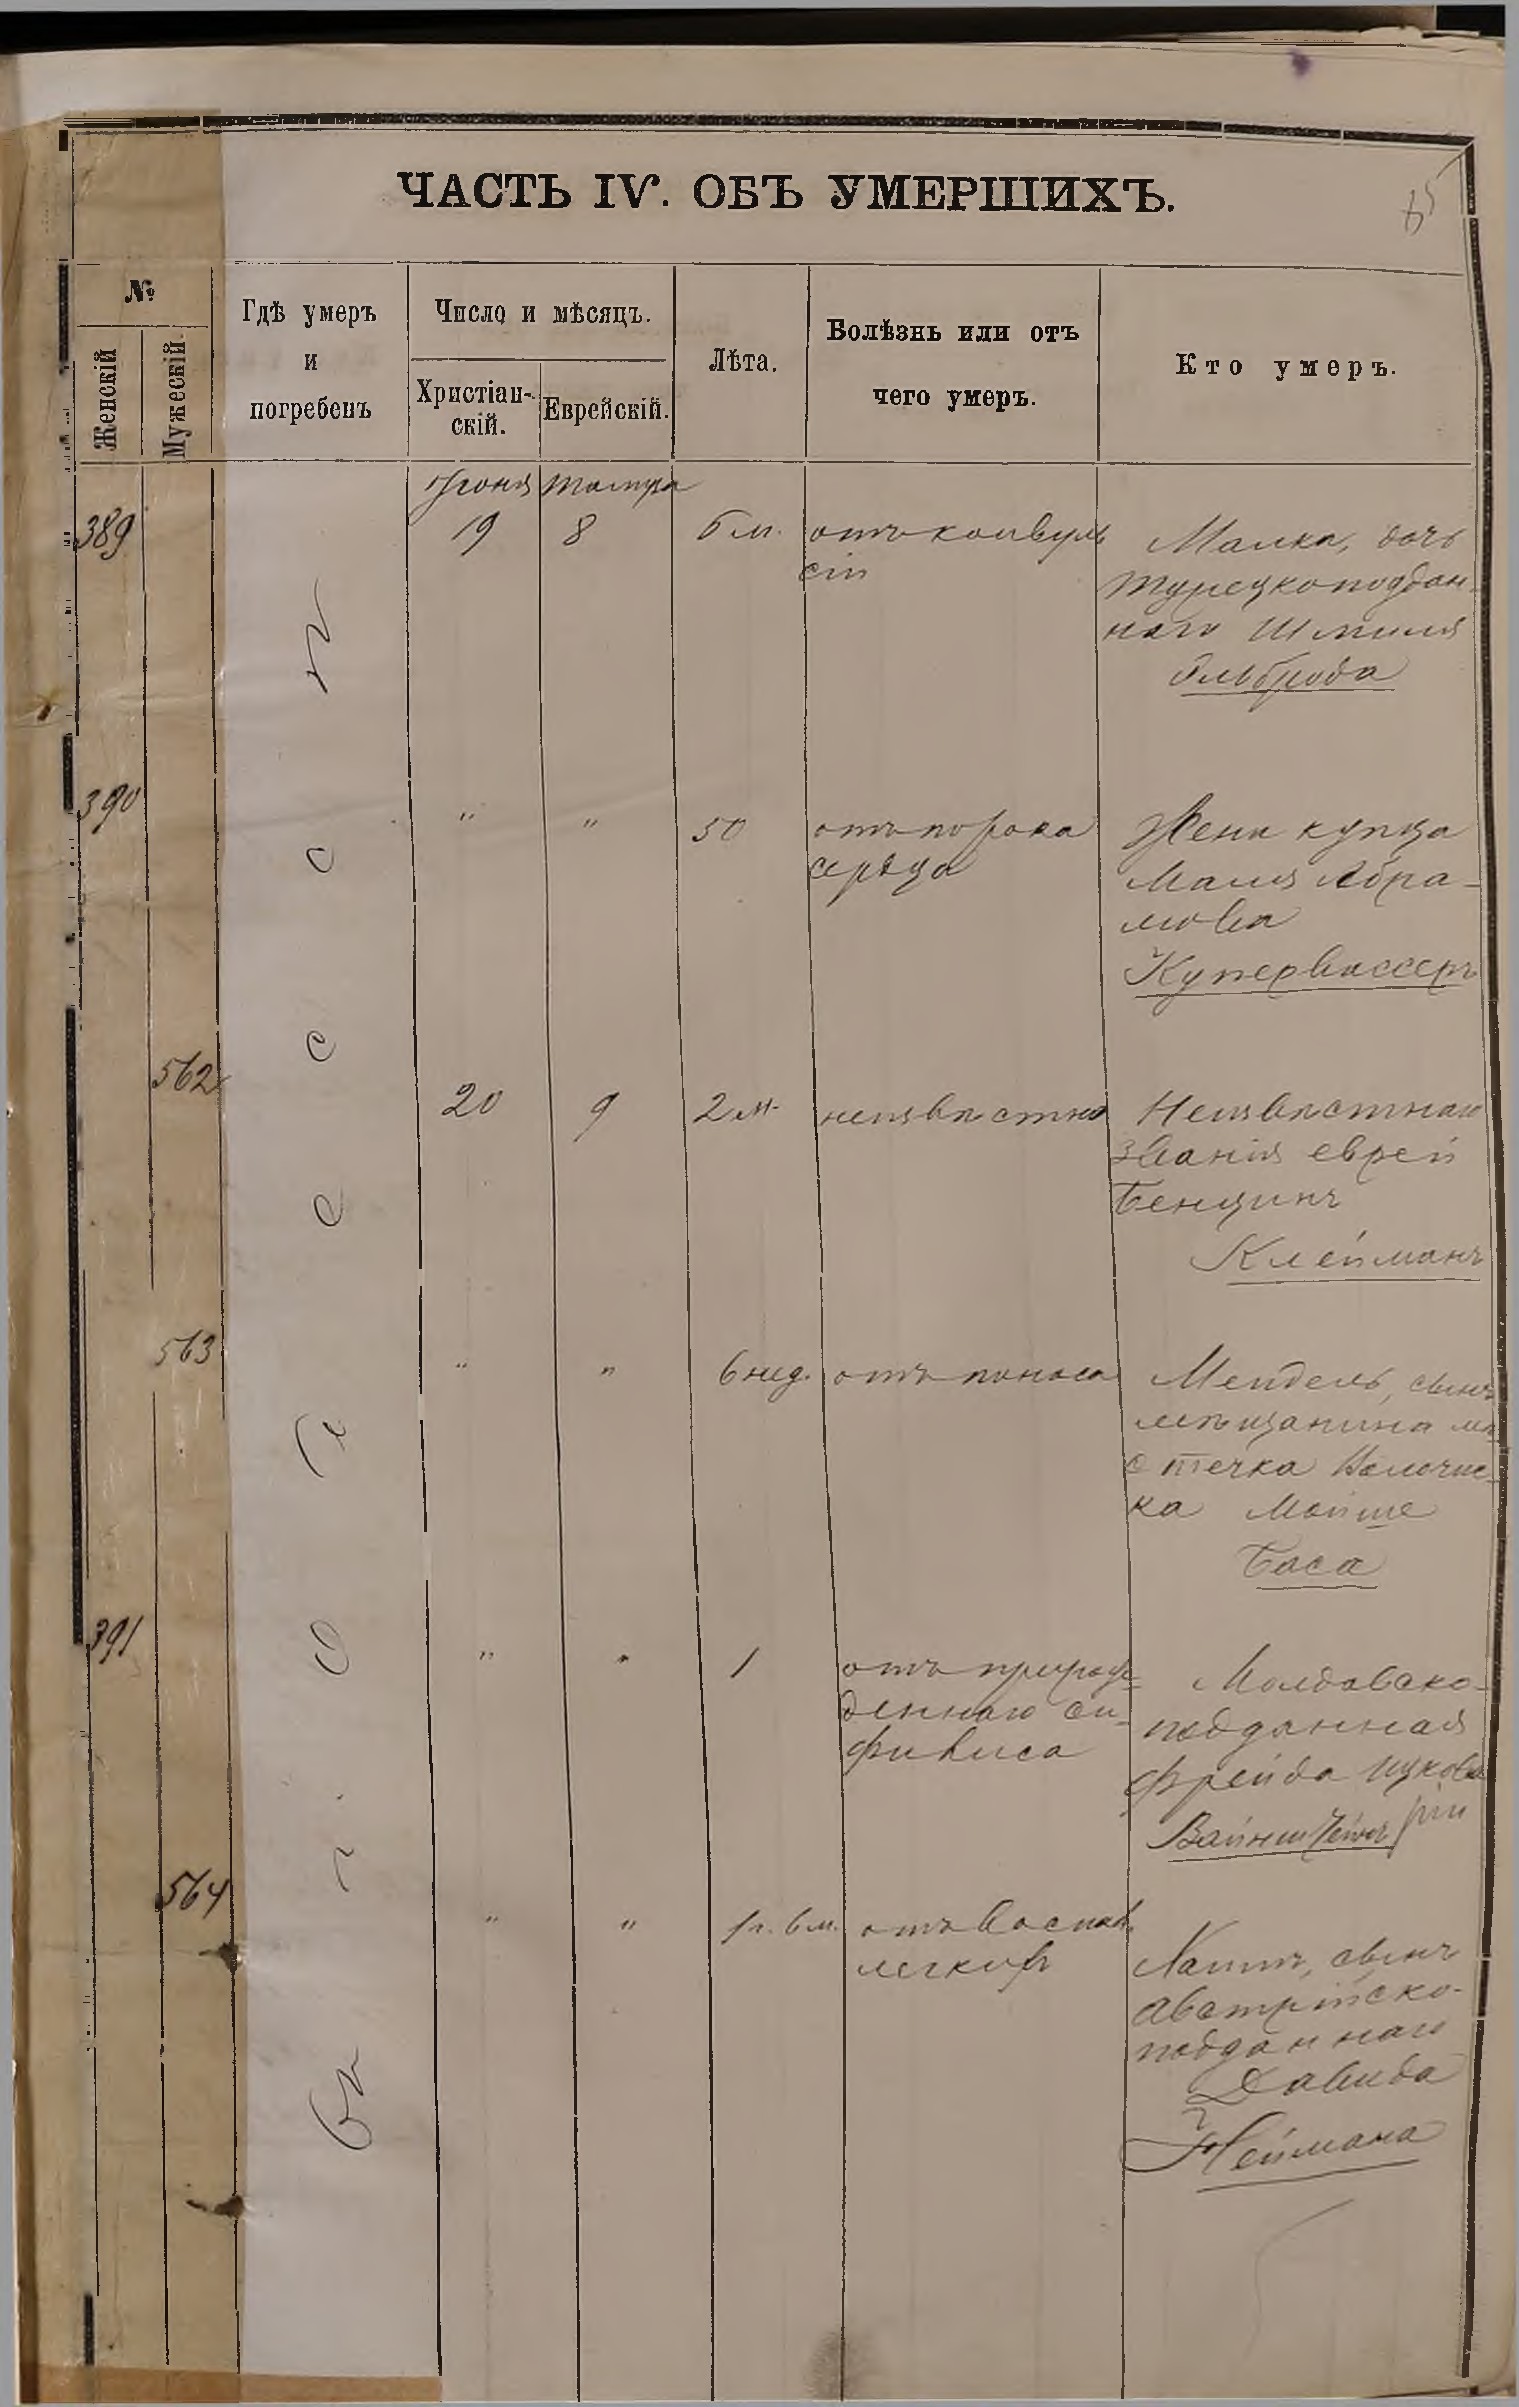 ЧАСТЬ IV. ОБЪ УМЕРШИХЪ.
65
№
Женскій
Мужескій.
Гдѣ умеръ
и
погребенъ
Число и мѣсяцъ.
Христіан-
скій.
Еврейскій.
Лѣта.
Болѣзнь или отъ
чего умеръ.
Кто умеръ.
Въ г. Одессѣ
Іюня Тамуза
389 19 8 6 м. отъ конвуль
сій
Малка, дочь
турецкоподдан-
наго Шмиля
Ольброда
390 " " 50 отъ порока
сердца
Жена купца
Маля Абра-
мова
Купервассеръ
562 20 9 2 м. неизвѣстно
Неизвѣстнаго
званія еврей
Бенціинъ
Клейманъ
563 " " 6 нед. отъ поноса
Мендель, сынъ
мѣщанина мѣ
стечка Волочис-
ка Мойше
Баса
391 " " 1 отъ прирож-
деннаго си-
филиса
Молдавско-
подданная
Фрейда Ицкова
Вайнштейнъ
564 " " 1 г. 6 м. отъ воспал.
легкихъ
Хаимъ, сынъ
австрійско-
подданнаго
Давида
Неймана